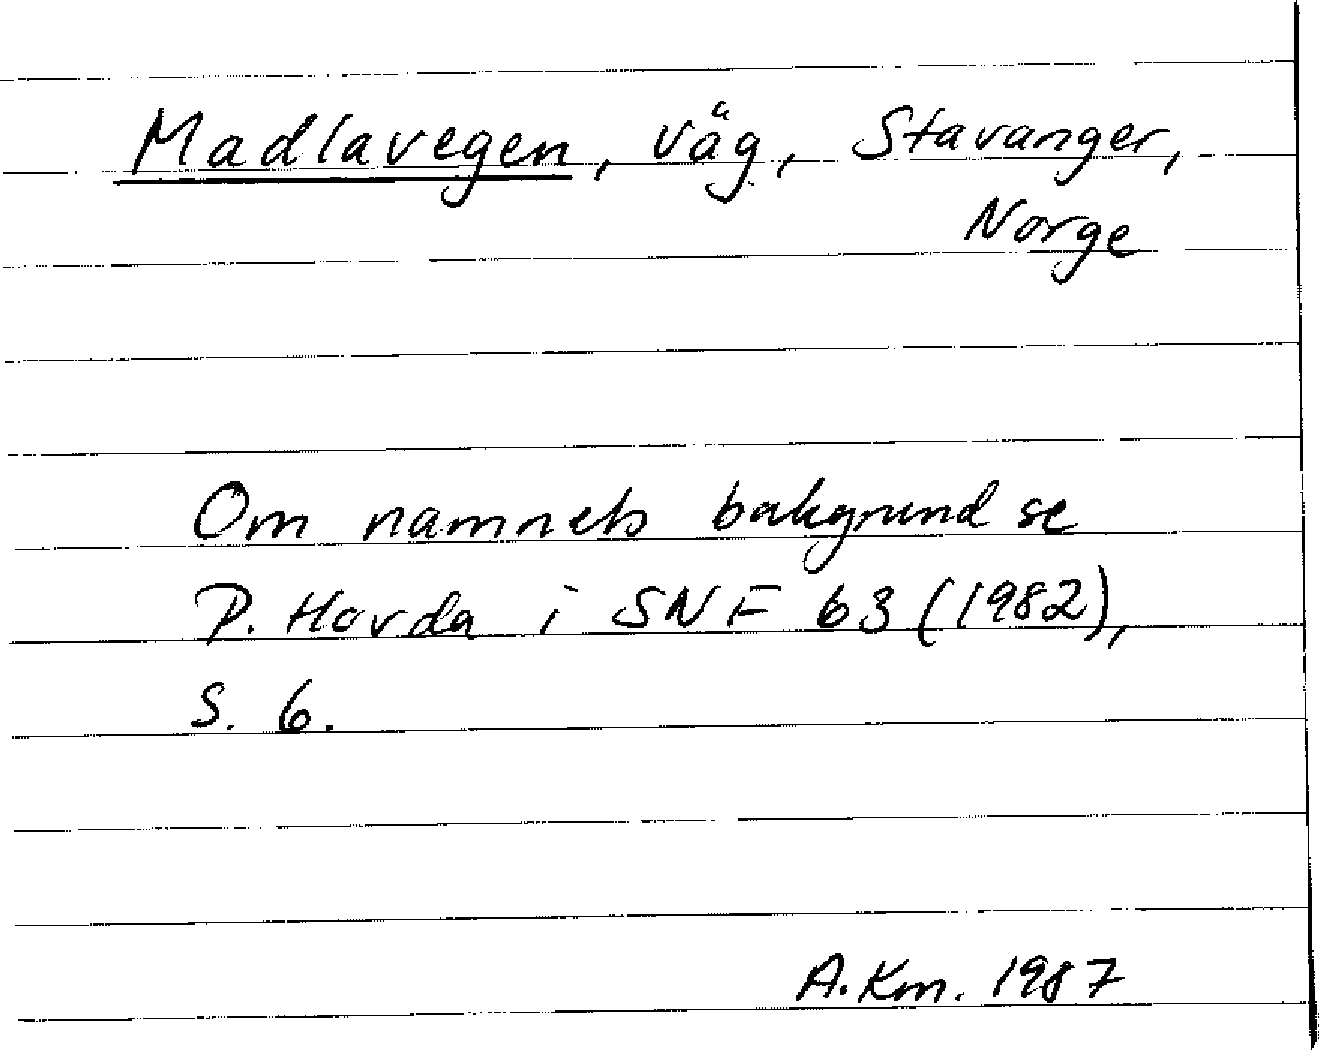 Madlavegen, väg, Stavanger,
Norge
Om namnets bakgrund se
P. Hovda i SNF 63 (1982),
S. 6.
A. Km. 1987